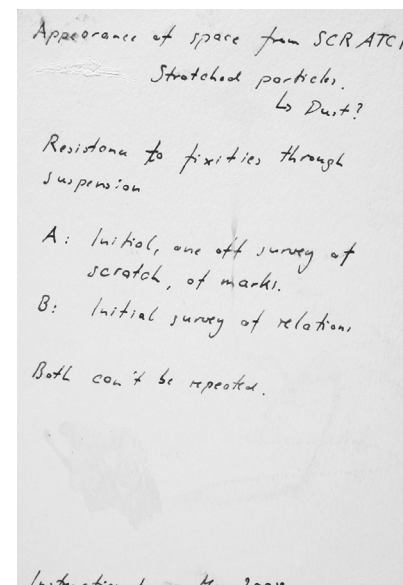 Appearance of space from SCRATCH
Stretched particles.
↳ Dust?
Resistance to fixities through
suspension
A: Initial, one off survey of
scratch, of marks.
B: Initial survey of relations
Both can't be repeated.